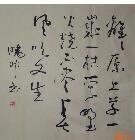 離々原上草一
歲一枯榮野
火燒不盡春
風吹又生